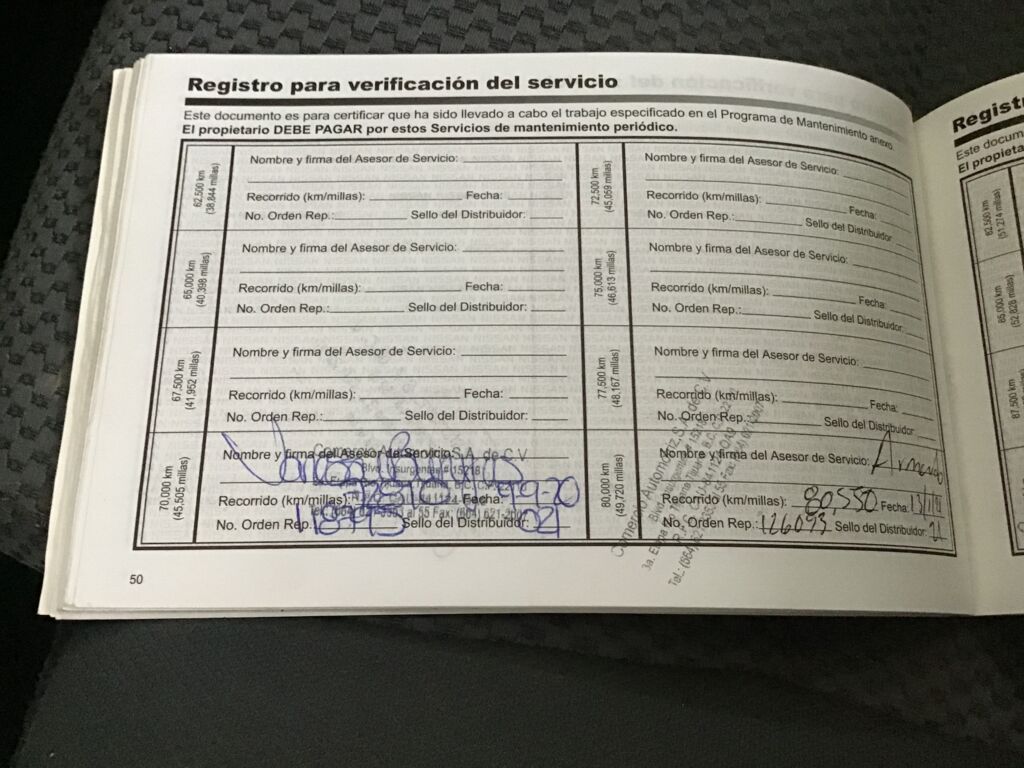 Registro para verificación del servicio
Este documento es para certificar que ha sido llevado a cabo el trabajo especificado en el Programa de Mantenimiento anexo.
El propietario DEBE PAGAR por estos Servicios de mantenimiento periódico.
62,500 km
(38,844 millas)
Nombre y firma del Asesor de Servicio:
Recorrido (km/millas): Fecha:
No. Orden Rep.: Sello del Distribuidor:
65,000 km
(40,398 millas)
Nombre y firma del Asesor de Servicio:
Recorrido (km/millas): Fecha:
No. Orden Rep.: Sello del Distribuidor:
67,500 km
(41,952 millas)
Nombre y firma del Asesor de Servicio:
Recorrido (km/millas): Fecha:
No. Orden Rep.: Sello del Distribuidor:
70,000 km
(45,505 millas)
Nombre y firma del Asesor de Servicio:
S.A. de C.V.
Blvd. Insurgentes # 15218
Recorrido (km/millas): Fecha:
No. Orden Rep. Sello del Distribuidor: 021
72,500 km
(45,059 millas)
Nombre y firma del Asesor de Servicio:
Recorrido (km/millas): Fecha:
No. Orden Rep.: Sello del Distribuidor
75,000 km
(46,613 millas)
Nombre y firma del Asesor de Servicio:
Recorrido (km/millas): Fecha:
No. Orden Rep.: Sello del Distribuidor:
77,500 km
(48,167 millas)
Nombre y firma del Asesor de Servicio:
Recorrido (km/millas): Fecha:
No. Orden Rep.: Sello del Distribuidor
80,000 km
(49,720 millas)
Nombre y firma del Asesor de Servicio:
Recorrido (km/millas): 80,550 Fecha:
No. Orden Rep.: 126093 Sello del Distribuidor: 21
Comercio Automotriz, S.A. de C.V.
50
Registr
Este docum
El propieta
62,500 km
(51,274 millas)
85,000 km
(52,828 millas)
87,500 km